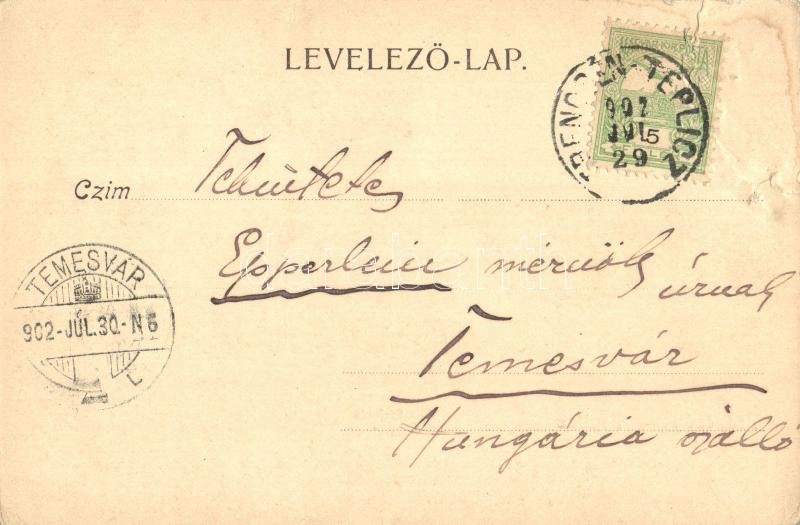 LEVELEZŐ-LAP.
TRENCSÉN-TEPLICZ
902
JUL
29
5
Czim
Tekintetes
Epperlein mérnök úrnak
Temesvár
Hungária szálló
TEMESVÁR
902-JÚL.30.-N6